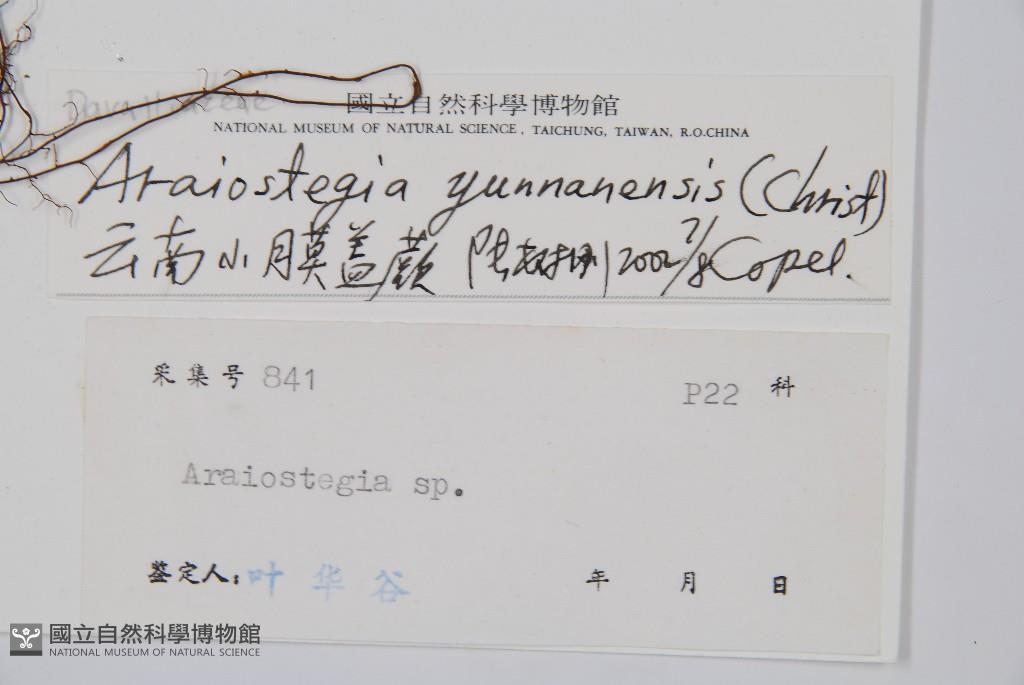 Davalliaceae
國立自然科學博物館
NATIONAL MUSEUM OF NATURAL SCIENCE, TAICHUNG, TAIWAN, R.O.CHINA
Araiostegia yunnanensis (Christ)
云南小膜盖蕨 陆树刚 2002 7/8 Copel.
采集号 841 P22 科
Araiostegia sp.
鉴定人: 叶华谷 年 月 日
國立自然科學博物館
NATIONAL MUSEUM OF NATURAL SCIENCE